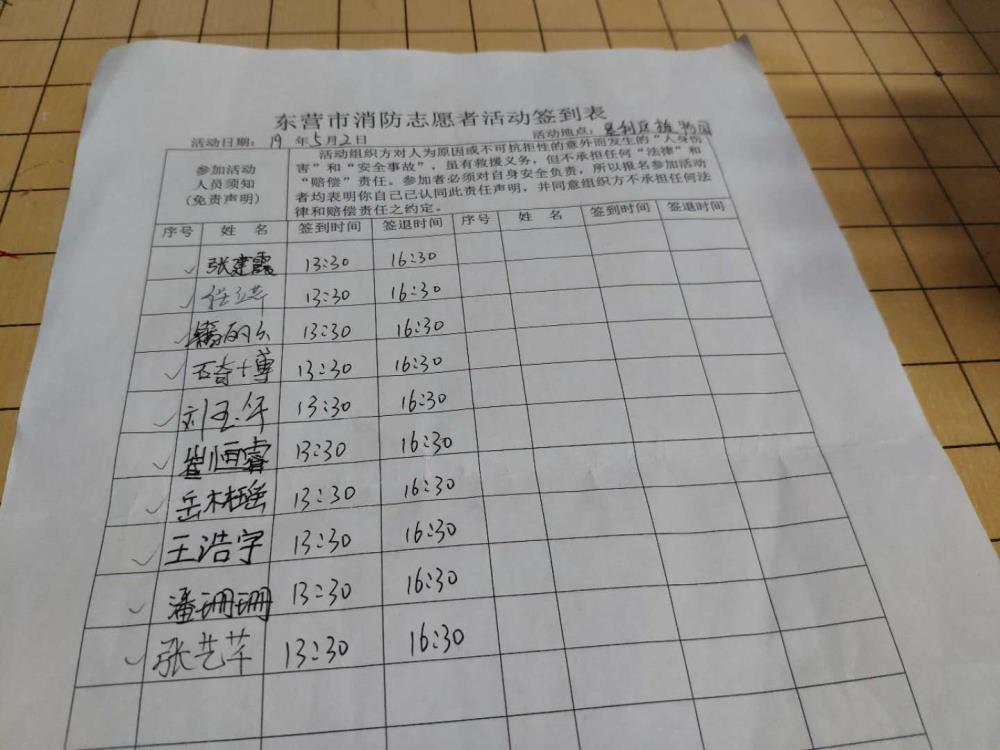 东营市消防志愿者活动签到表
活动日期：19 年5月2日 活动地点：垦利区植物园
参加活动
人员须知
(免责声明)
活动组织方对人为原因或不可抗拒性的意外而发生的“人身伤
害”和“安全事故”，虽有救援义务，但不承担任何“法律”和
“赔偿”责任。参加者必须对自身安全负责，所以报名参加活动
者均表明你自己已认同此责任声明，并同意组织方不承担任何法
律和赔偿责任之约定。
序号 姓 名 签到时间 签退时间 序号 姓 名 签到时间 签退时间
张建霞 13:30 16:30
13:30 16:30
13:30 16:30
石奇博 13:30 16:30
刘玉年 13:30 16:30
崔恒睿 13:30 16:30
岳木桠 13:30 16:30
王浩宇 13:30 16:30
潘珊珊 13:30 16:30
张艺芊 13:30 16:30